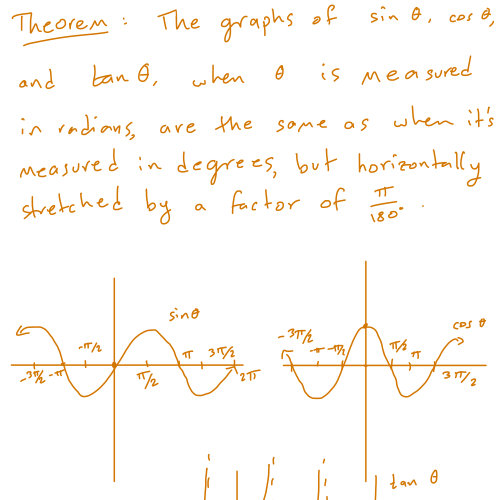 Theorem: The graphs of sin θ, cos θ,
and tan θ, when θ is measured
in radians, are the same as when it's
measured in degrees, but horizontally
stretched by a factor of π/180° .
sin θ
-3π/2 -π -π/2 π/2 π 3π/2 2π
cos θ
-3π/2 -π -π/2 π/2 π 3π/2
tan θ